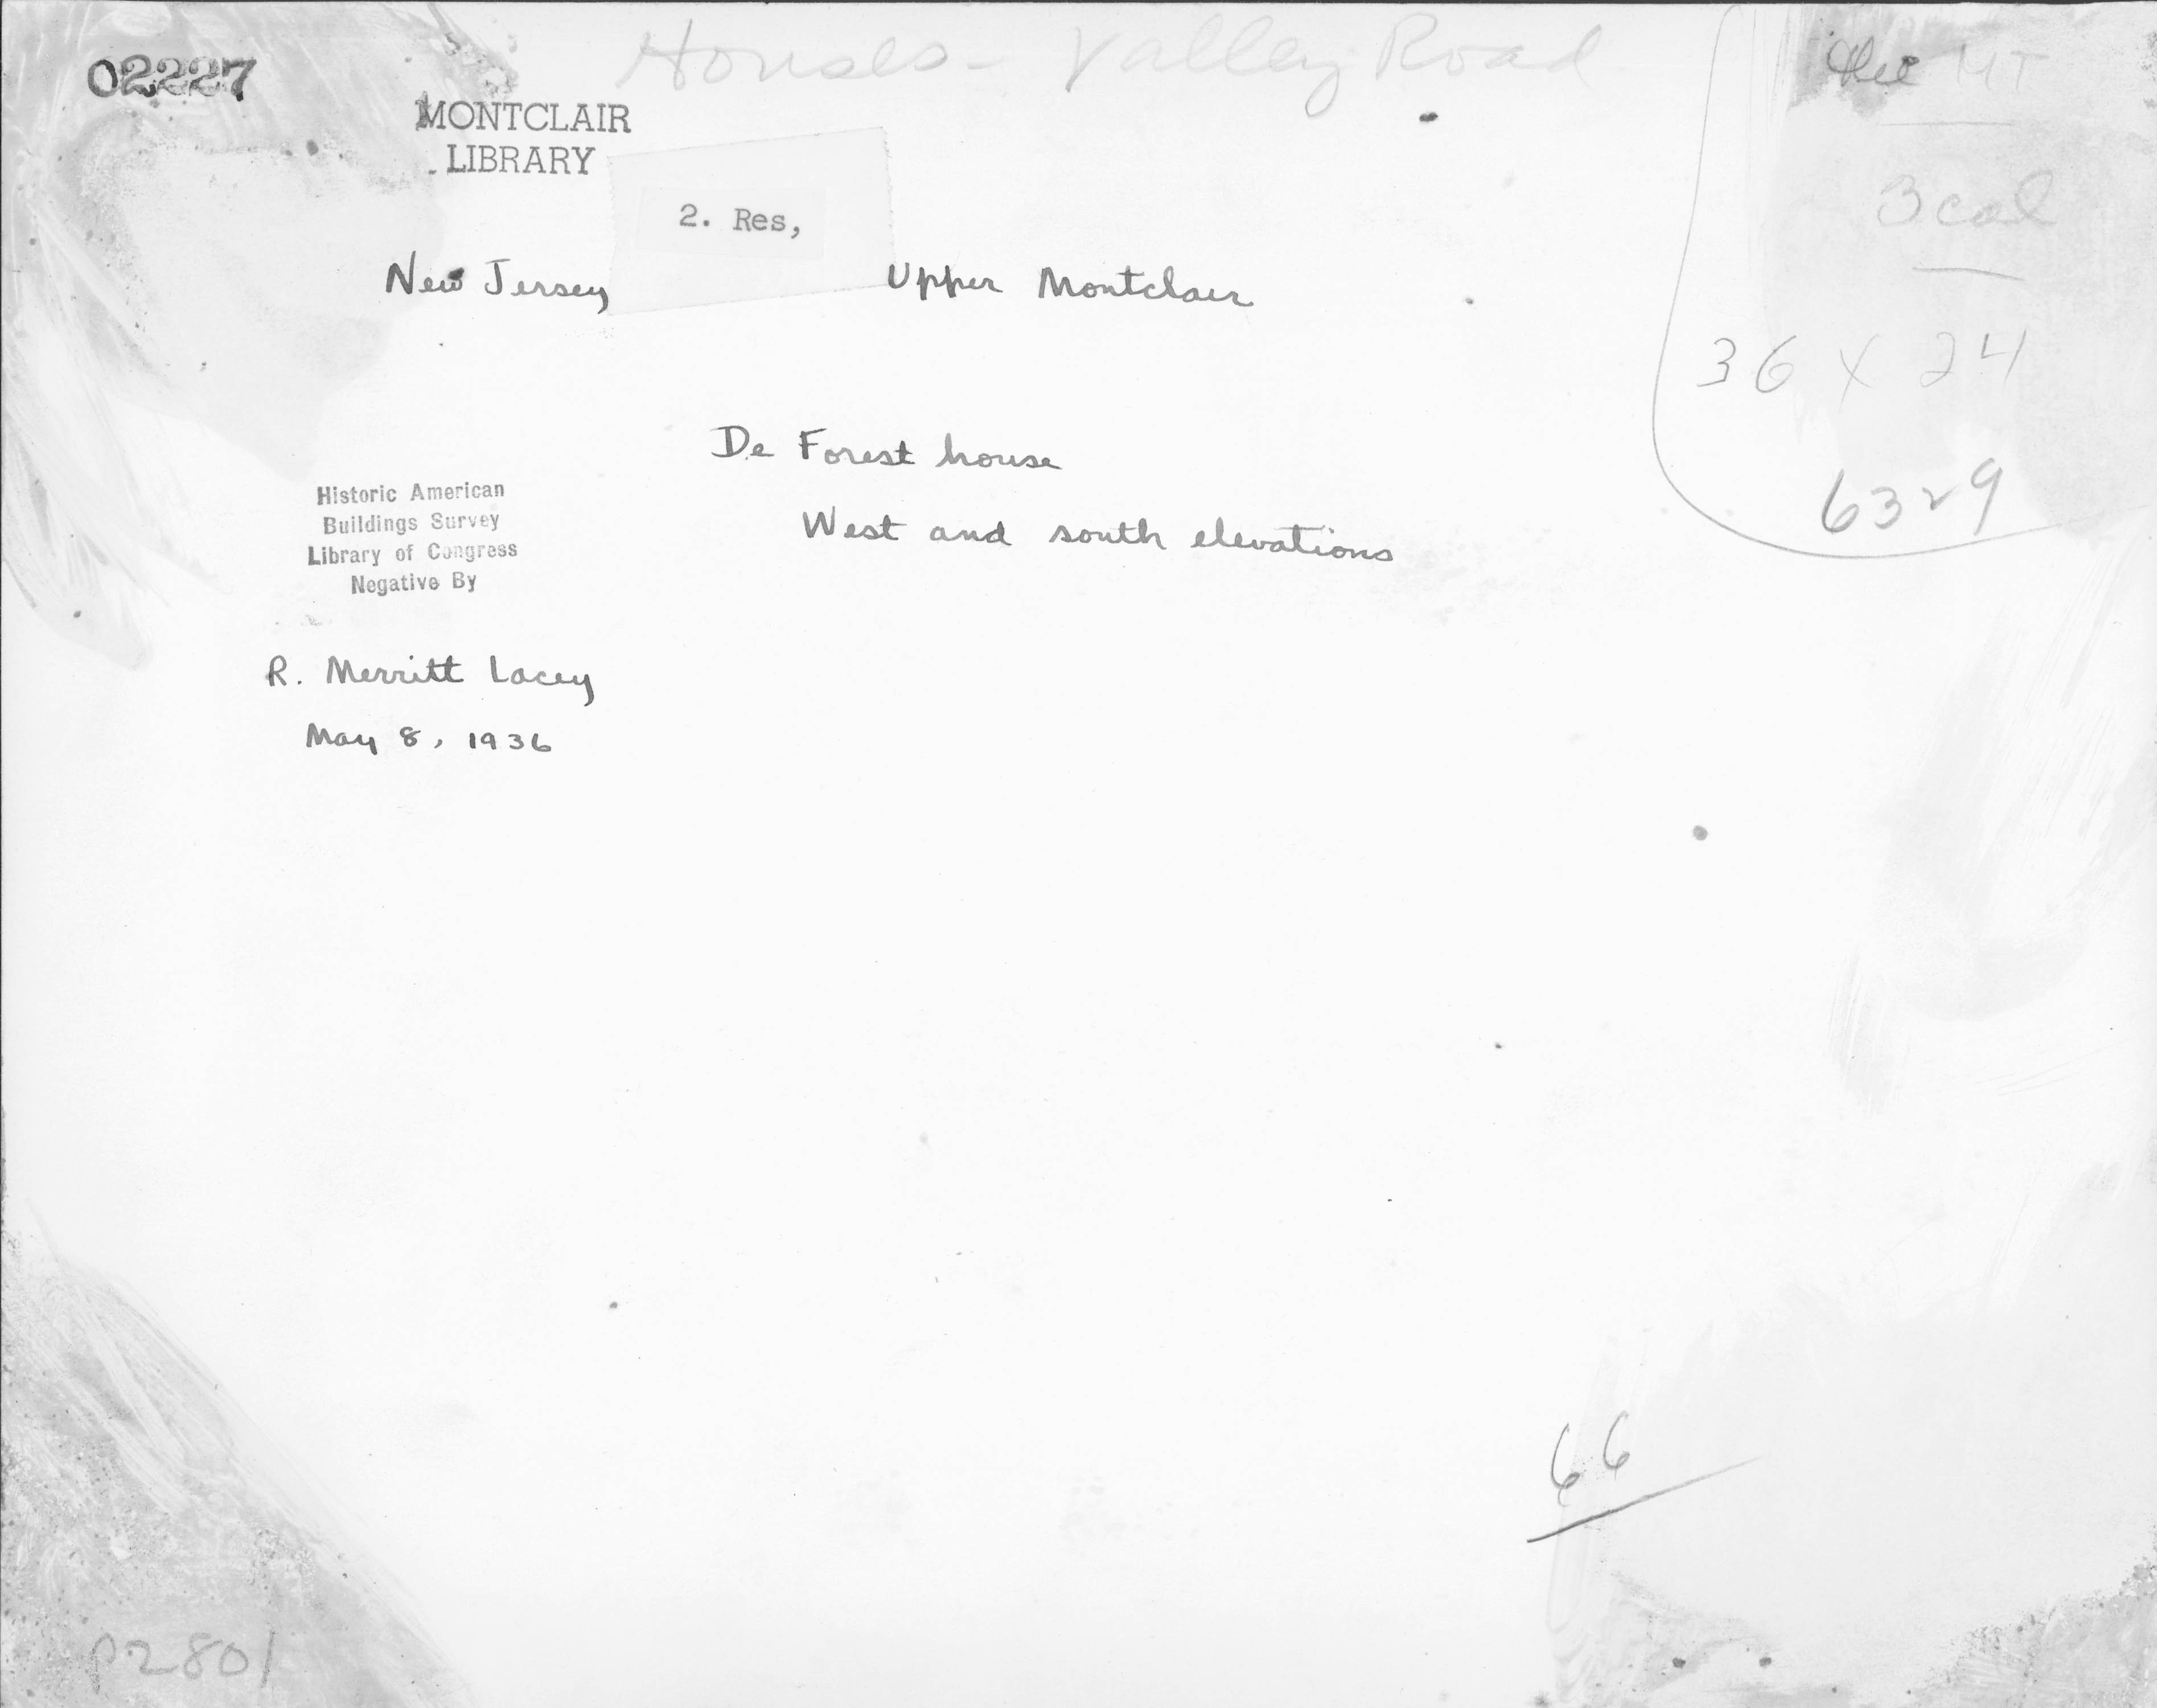 02227
Houses - Valley Road
MONTCLAIR
LIBRARY
2. Res,
New Jersey
Upper Montclair
3 col
36 x 24
6329
De Forest house
West and south elevations
Historic American
Buildings Survey
Library of Congress
Negative By
R. Merritt Lacey
May 8, 1936
66
P2801